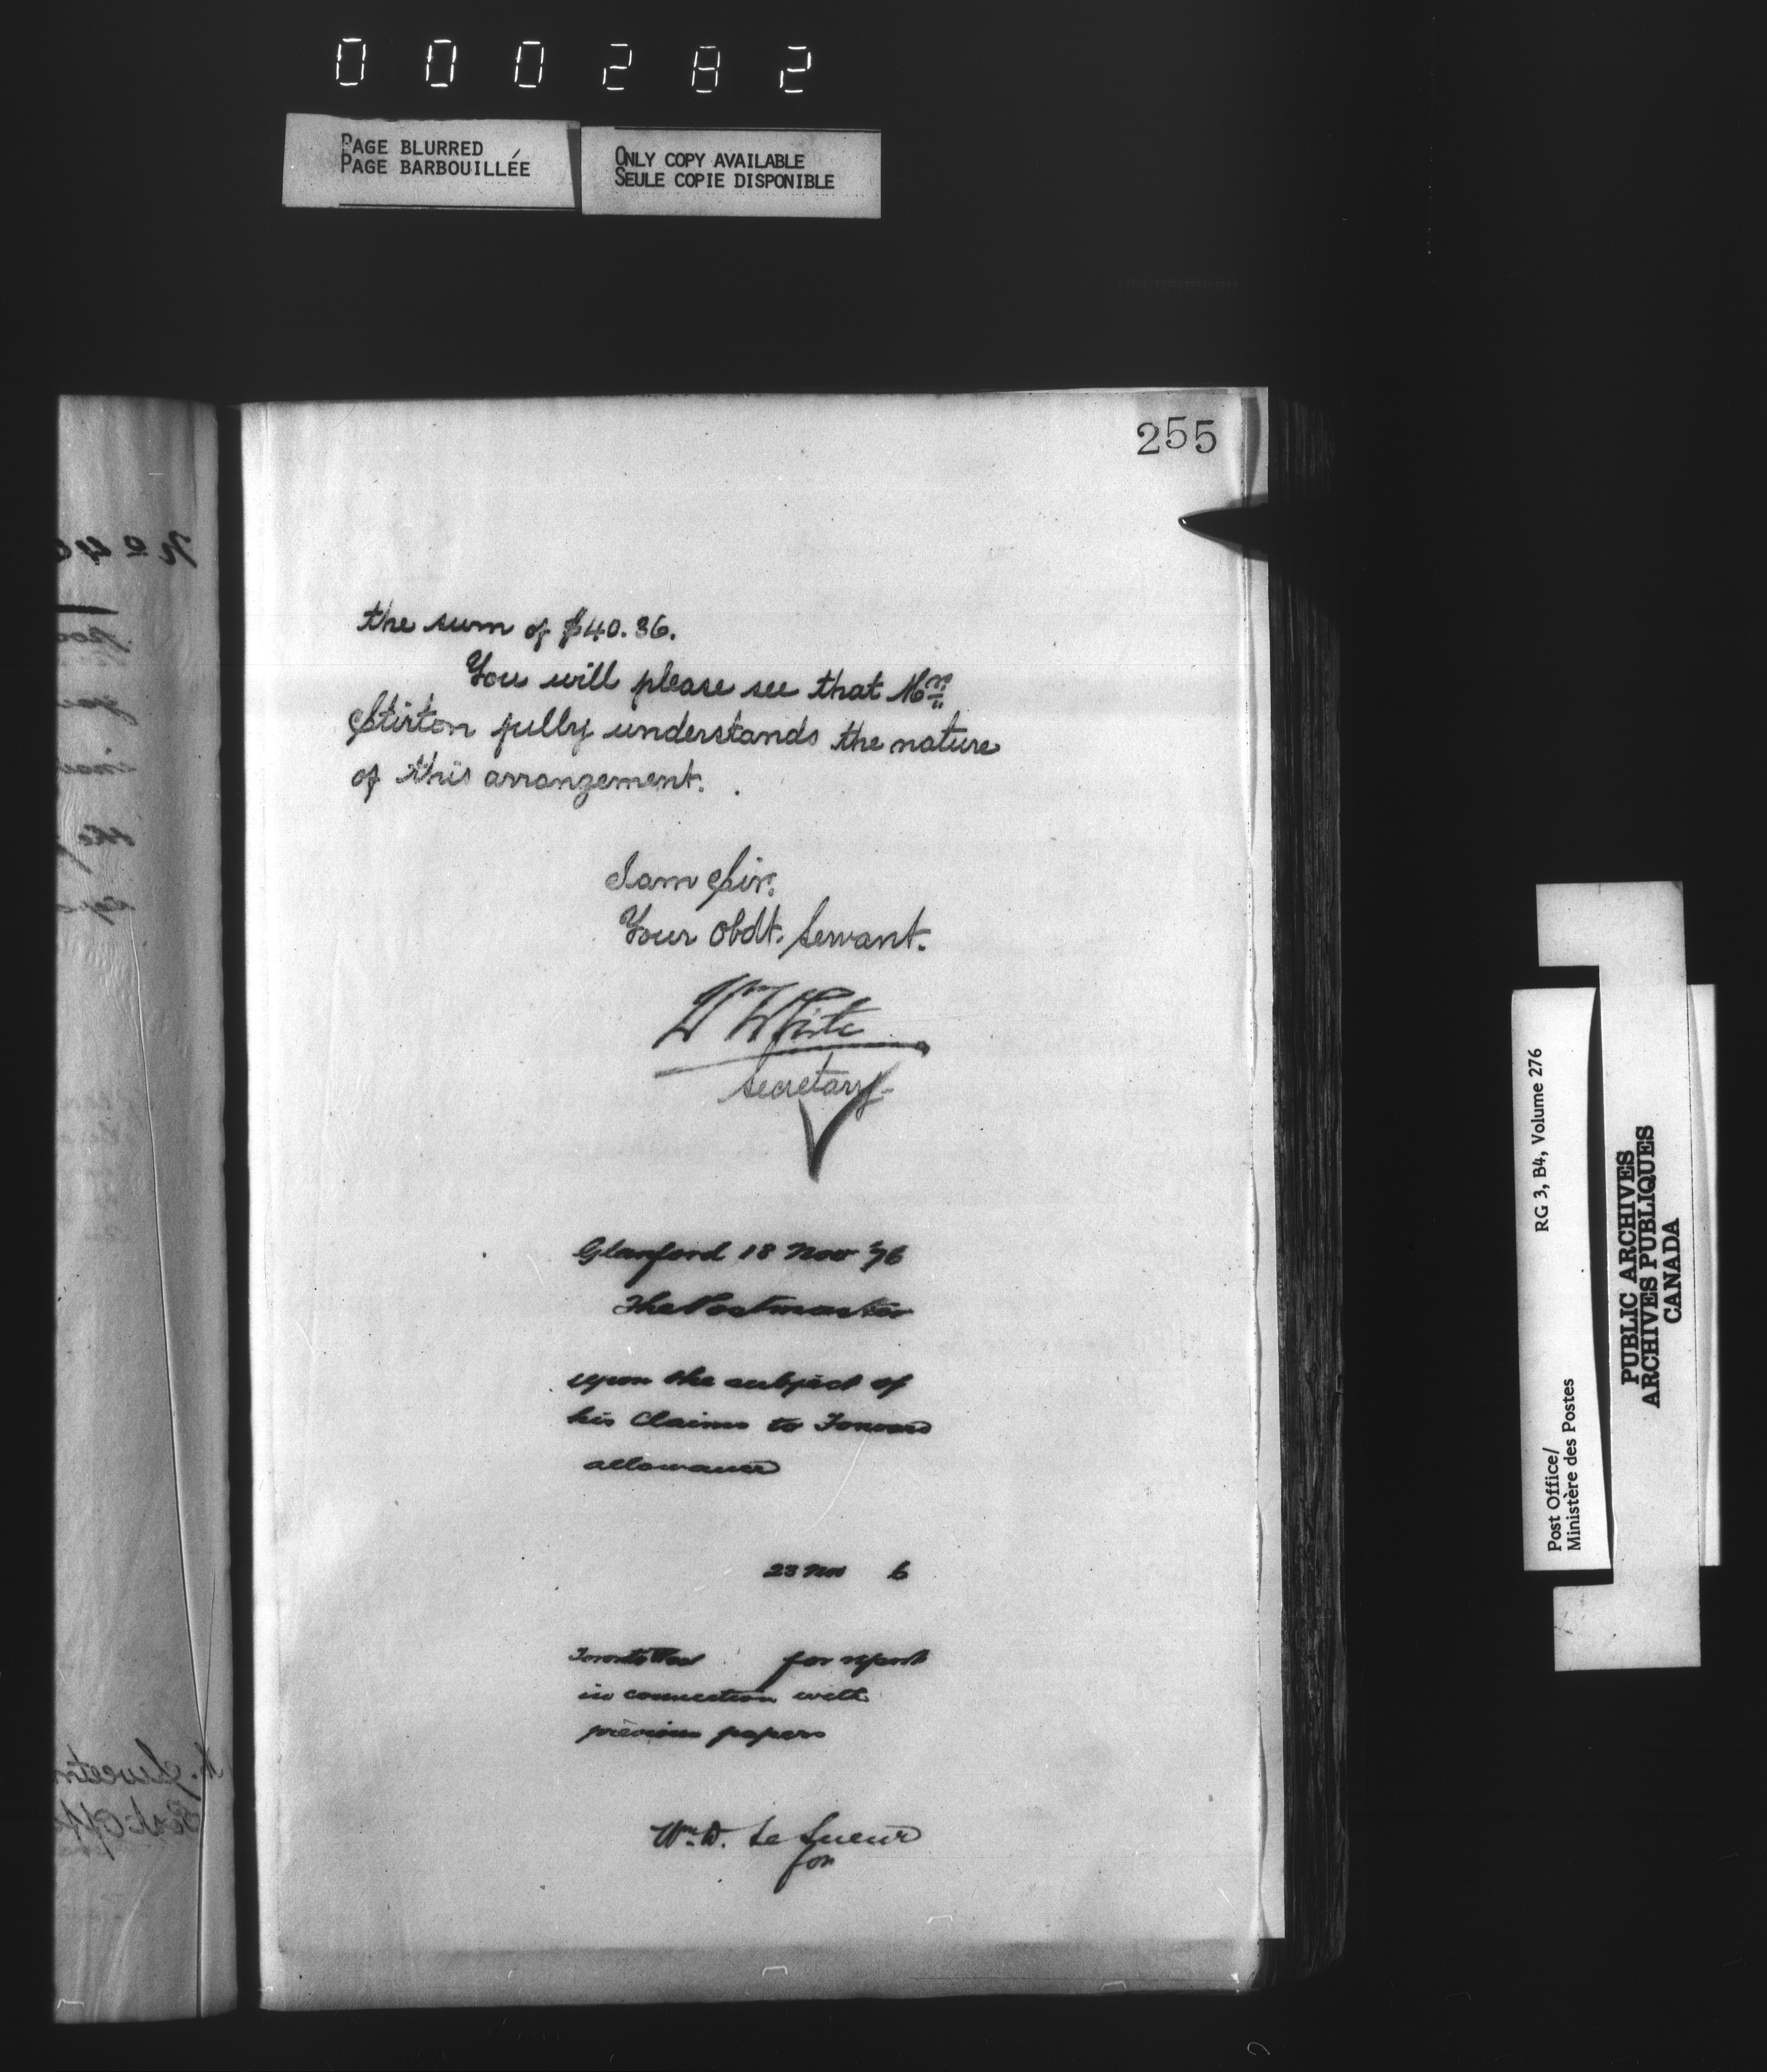 000282
PAGE BLURRED
PAGE BARBOUILLÉE
ONLY COPY AVAILABLE
SEULE COPIE DISPONIBLE
255
the sum of $40.36.
You will please see that Mr.
Stirton fully understands the nature
of this arrangement.
I am Sir,
Your Obdt. Servant.
Wm White
Secretary
Glanford 18 Nov '76
The Postmaster
upon the subject of
his Claims to Forward
allowance
23 Nov 6
Toronto for report
in connection with
previous papers
Wm. D. Le Sueur
for
RG 3, B4, Volume 276
Post Office/
Ministère des Postes
PUBLIC ARCHIVES
ARCHIVES PUBLIQUES
CANADA